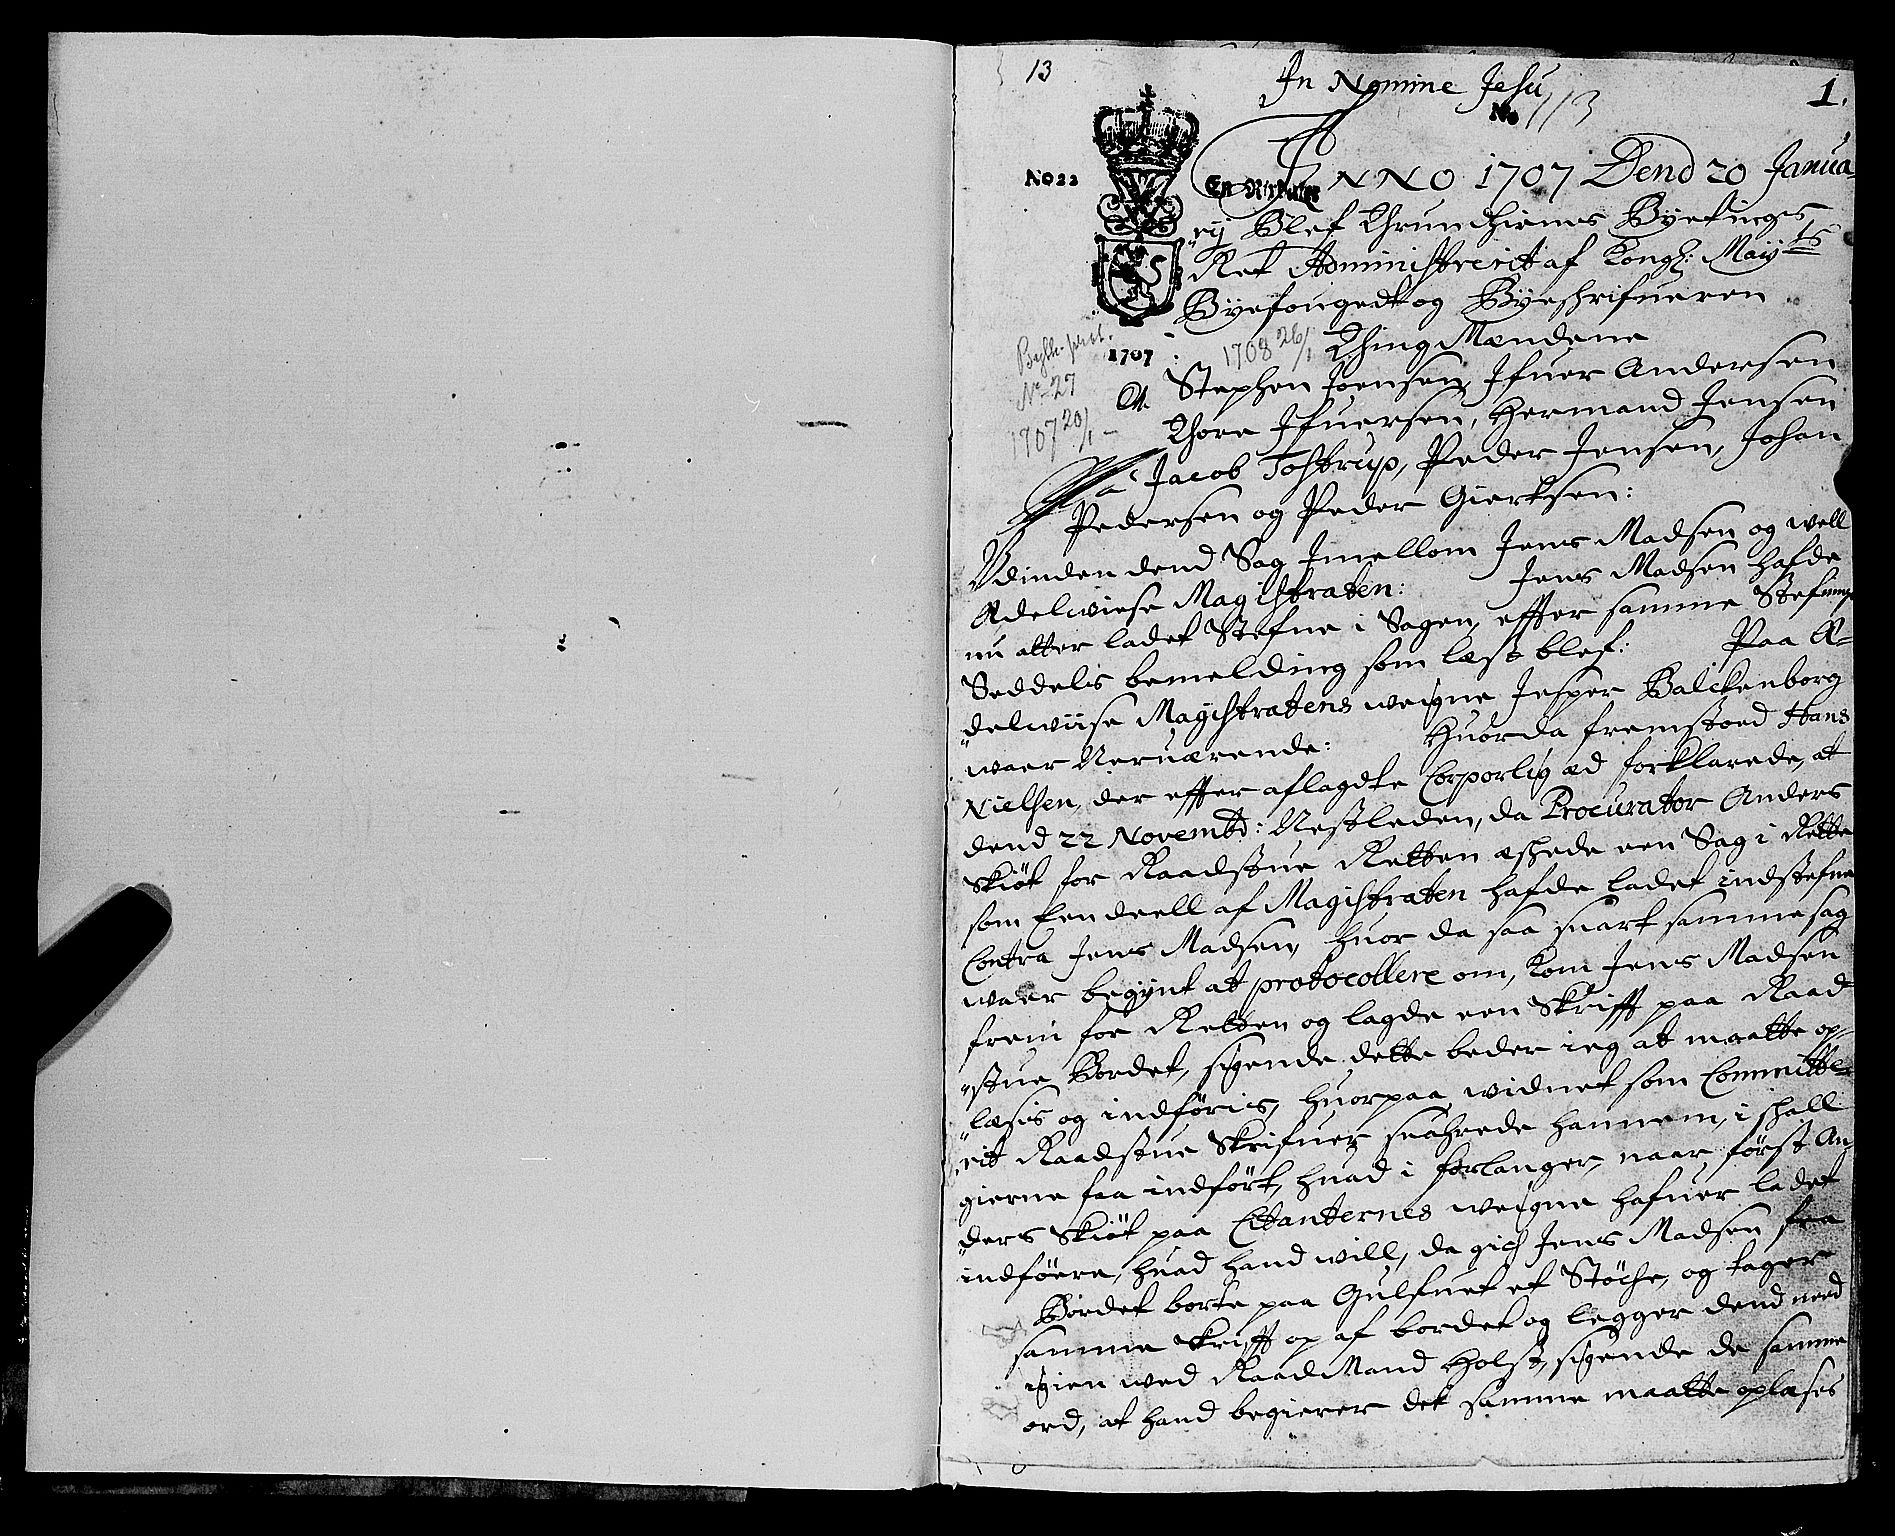 13
In Nomine Jesu
No 113
1.
No 22
En Rixdaler
ANNO 1707 Dend 20 Janua-
rij Blef Thrundhiems Byetings
Ret Administrerit af Kongl: Mayts
Byefougedt og Byeskrifueren
Bytth. prot.
No 27
1707 20/1 –
1707
1708 26/1
Thing Mændene
A. Stephen Joensen, Ifuer Andersen
Thore Ifuersen, Hermand Jensen
Jacob Tostrup, Peder Jensen, Johan
Pedersen og Peder Giertsen:
Udinden dend Sag Imellom Jens Madsen og well
Adelwiese Magistraten: Jens Madsen hafde
nu atter ladet Stefne i Sagen, effter samme Stefnings
Seddels bemelding som læst blef: Paa A-
delwiise Magistratens weigne Jesper Balckenborg
waer Neruærende: Huorda fremstoed Hans
Nielsen, der effter aflagdte Corporlig æd forklarede, at
dend 22 Novembr: Nestleden, da Procurator Anders
Skiöt for Raadstue Retten eshede een Sag i Rette
som Een deell af Magistraten hafde ladet indstefne
Contra Jens Madsen, huor da saa snart samme sag
waer begynt at protocollere om, kom Jens Madsen
frem for Retten og lagde een Skrifft paa Raad
stue Bordet, sigende dette beder ieg at maatte op-
læsis og indföris, huorpaa widnet som Committe-
rit Raadstue Skrifuer suahrede hannem, i shall
gierne faa indfört, huad i forlanger, naar först An
ders Skiöt paa Citanternes weigne hafuer ladet
indföere, huad hand will, da gich Jens Madsen fra
Bordet borte paa Gulfuet et Stöche, og tager
samme Skrifft op af bordet og legger dend need
igien wed Raad Mand Holst, sigende de samme
ord, at hand begierer det samme maatte oplæses